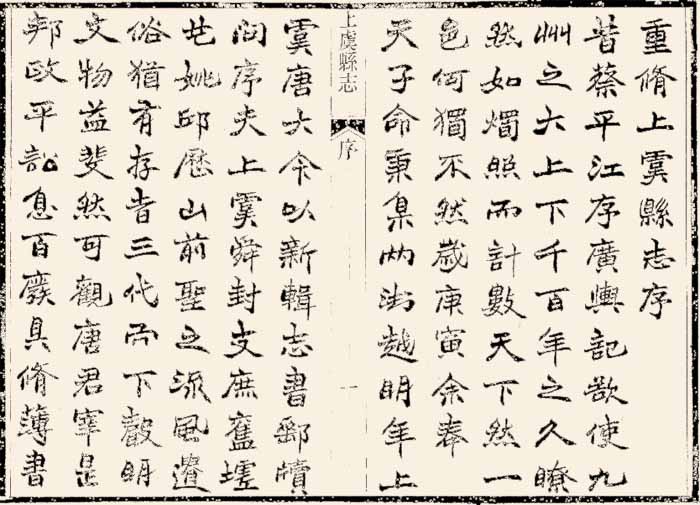 重脩上虞縣志序
昔蔡平江存廣輿記欲使九
州之大上下千百年之久瞭
然如燭照而計數天下然一
邑何獨不然歲庚寅余奉
天子命秉臬兩浙越明年上
上虞縣志 序 一
虞唐大令以新輯志書郵牘
問序夫上虞舜封支庶舊墟
也姚邱歷山前聖之流風遺
俗猶有存者三代而下聲明
文物益斐然可觀唐君宰是
邦政平訟息百廢具脩薄書